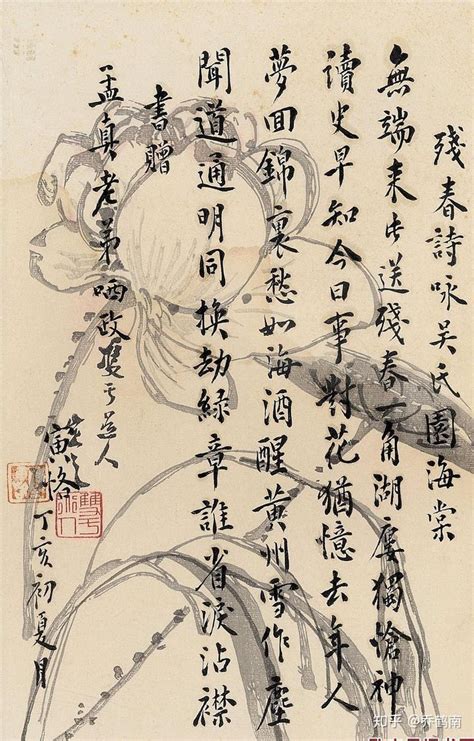 殘春詩咏吳氏園海棠
無端来此送殘春一角湖廔獨愴神
讀史早知今日事對花猶憶去年人
夢回錦裏愁如海酒醒黃州雪作塵
聞道通明同換劫綠章誰省淚沾襟
書贈
孟真老弟哂政
道人
寅恪
丁亥初夏月
知乎 @乔鹤南